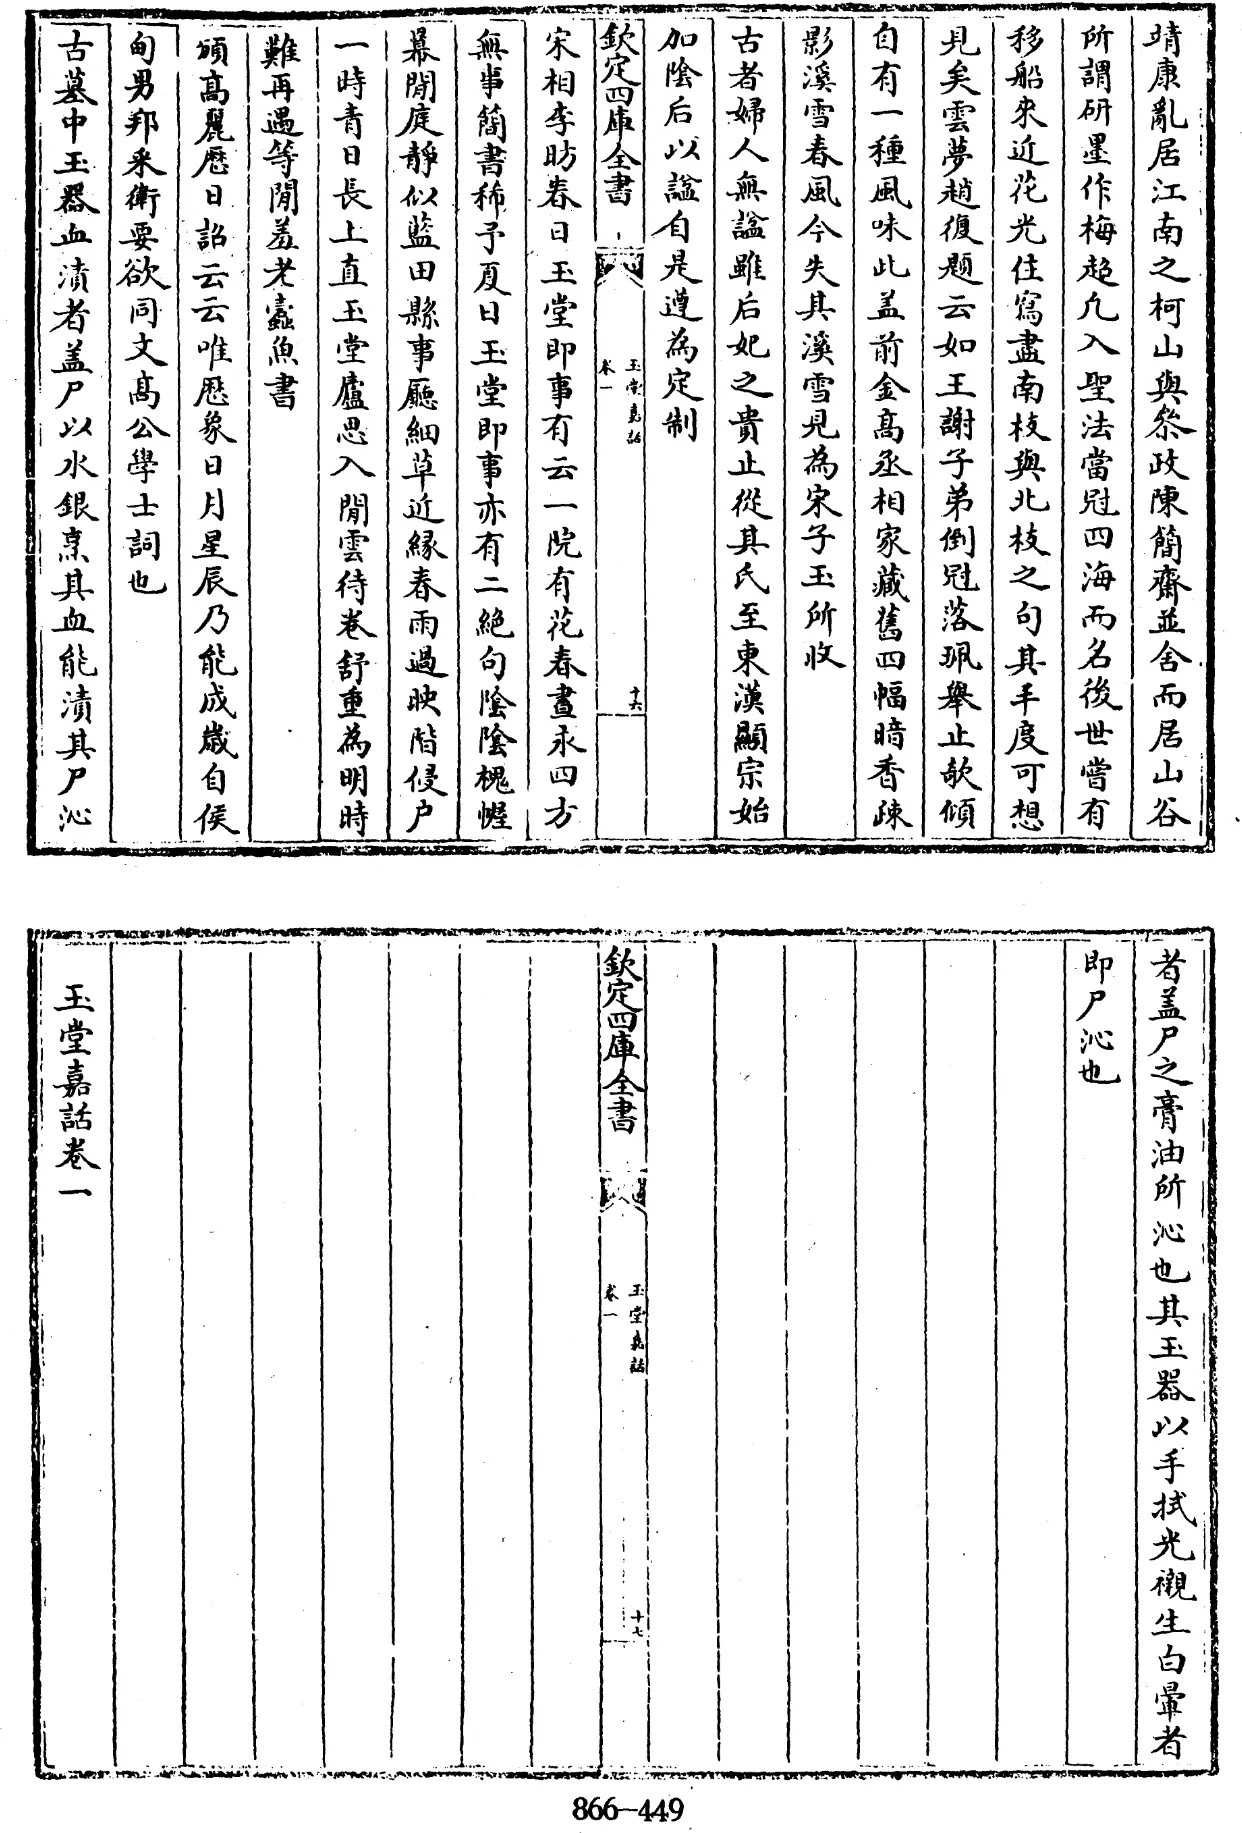 靖康亂居江南之柯山與叅政陳簡齋並舍而居山谷
所謂研墨作梅超凢入聖法當冠四海而名後世嘗有
移船來近花光住寫盡南枝與北枝之句其手度可想
見矣雲夢趙復題云如王謝子弟倒冠落珮舉止欹傾
自有一種風味此盖前金髙丞相家藏舊四幅暗香疎
影溪雪春風今失其溪雪見為宋子玉所收
古者婦人無諡雖后妃之貴止從其氏至東漢顯宗始
加隂后以諡自是遵為定制
欽定四庫全書
玉堂嘉話
卷一
十六
宋相李昉春日玉堂即事有云一院有花春晝永四方
無事簡書稀予夏日玉堂即事亦有二絶句隂隂槐幄
幕閒庭靜似藍田縣事廳細草近緣春雨過映階侵户
一時青日長上直玉堂廬思入閒雲待卷舒重為明時
難再遇等閒羞老蠧魚書
頒髙麗厯日詔云云唯厯象日月星辰乃能成歲自侯
甸男邦采衛要欲同文髙公學士詞也
古墓中玉器血漬者盖尸以水銀烹其血能漬其尸沁
者盖尸之膏油所沁也其玉器以手拭光襯生白暈者
即尸沁也
欽定四庫全書
玉堂嘉話
卷一
十七
玉堂嘉話卷一
866-449